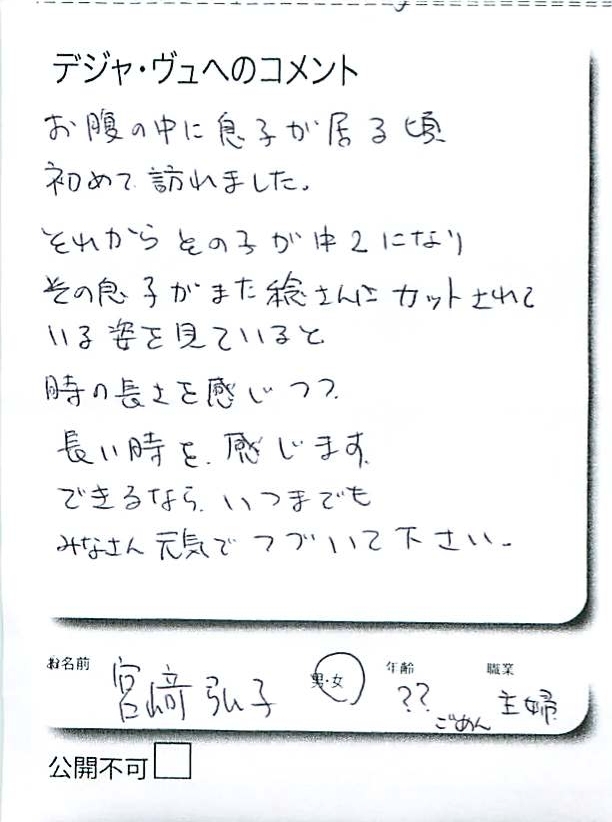 デジャ・ヴュへのコメント
お腹の中に息子が居る頃
初めて訪れました。
それからその子が中2になり
その息子がまた稔さんにカットされて
いる姿を見ていると
時の長さを感じつつ
長い時を、感じます。
できるなら、いつまでも
みなさん元気でつづいて下さい。
お名前 宮﨑弘子 男・女 年齢 ?? ごめん 職業 主婦
公開不可